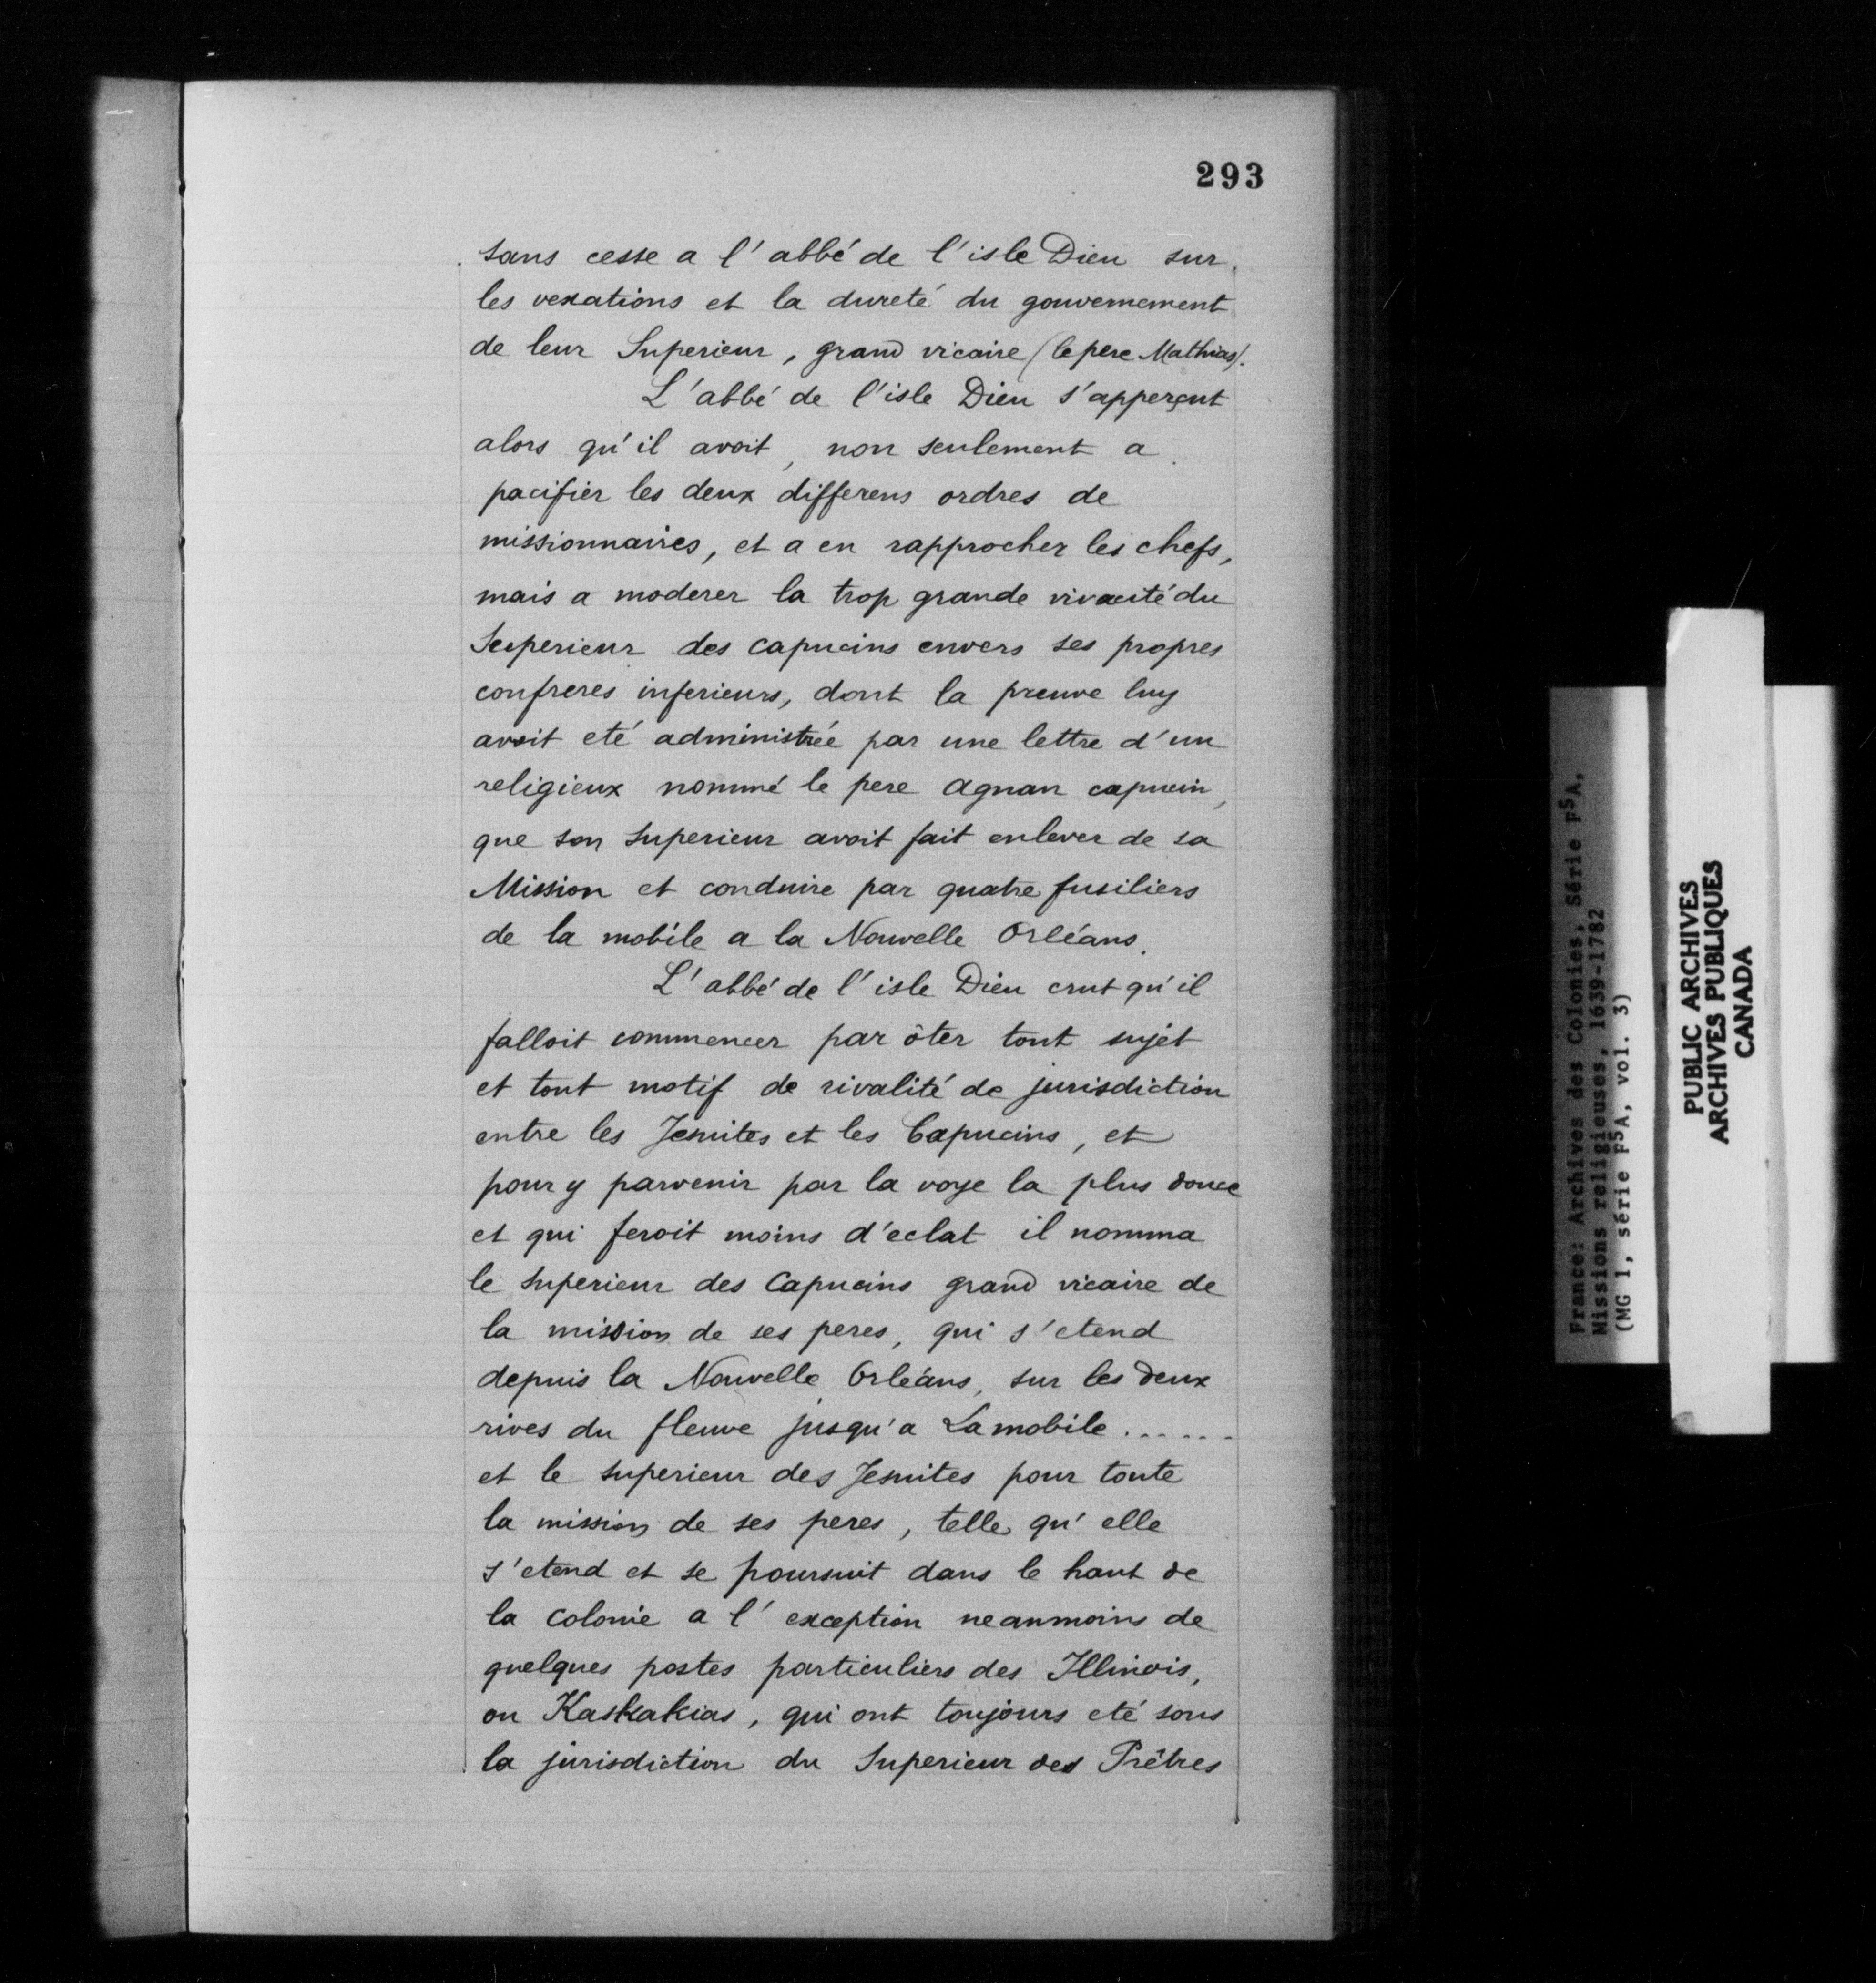 293
sans cesse a l'abbé de l'isle Dieu sur
les vexations et la dureté du gouvernement
de leur Superieur, grand vicaire (le pere Mathias).
L'abbé de l'isle Dieu s'apperçut
alors qu'il avoit, non seulement a
pacifier les deux differens ordres de
missionnaires, et a en rapprocher les chefs,
mais a moderer la trop grande vivacité du
Superieur des capucins envers ses propres
confreres inferieurs, dont la preuve luy
avoit eté administrée par une lettre d'un
religieux nommé le pere agnan capucin,
que son superieur avoit fait enlever de sa
Mission et conduire par quatre fusiliers
de la mobile a la Nouvelle Orléans.
L'abbé de l'isle Dieu crut qu'il
falloit commencer par ôter tout sujet
et tout motif de rivalité de jurisdiction
entre les Jesuites et les Capucins, et
pour y parvenir par la voye la plus douce
et qui feroit moins d'eclat il nomma
le superieur des Capucins grand vicaire de
la mission de ses peres, qui s'etend
depuis la Nouvelle Orléans, sur les deux
rives du fleuve jusqu'a La mobile......
et le superieur des Jesuites pour toute
la mission de ses peres, telle qu'elle
s'etend et se poursuit dans le haut de
la colonie a l'exception neanmoins de
quelques postes particuliers des Illinois,
ou Kaskakias, qui ont toujours eté sous
la jurisdiction du Superieur des Prêtres
France: Archives des Colonies, Série F⁵A,
Missions religieuses, 1639-1782
(MG 1, série F⁵A, vol. 3)
PUBLIC ARCHIVES
ARCHIVES PUBLIQUES
CANADA